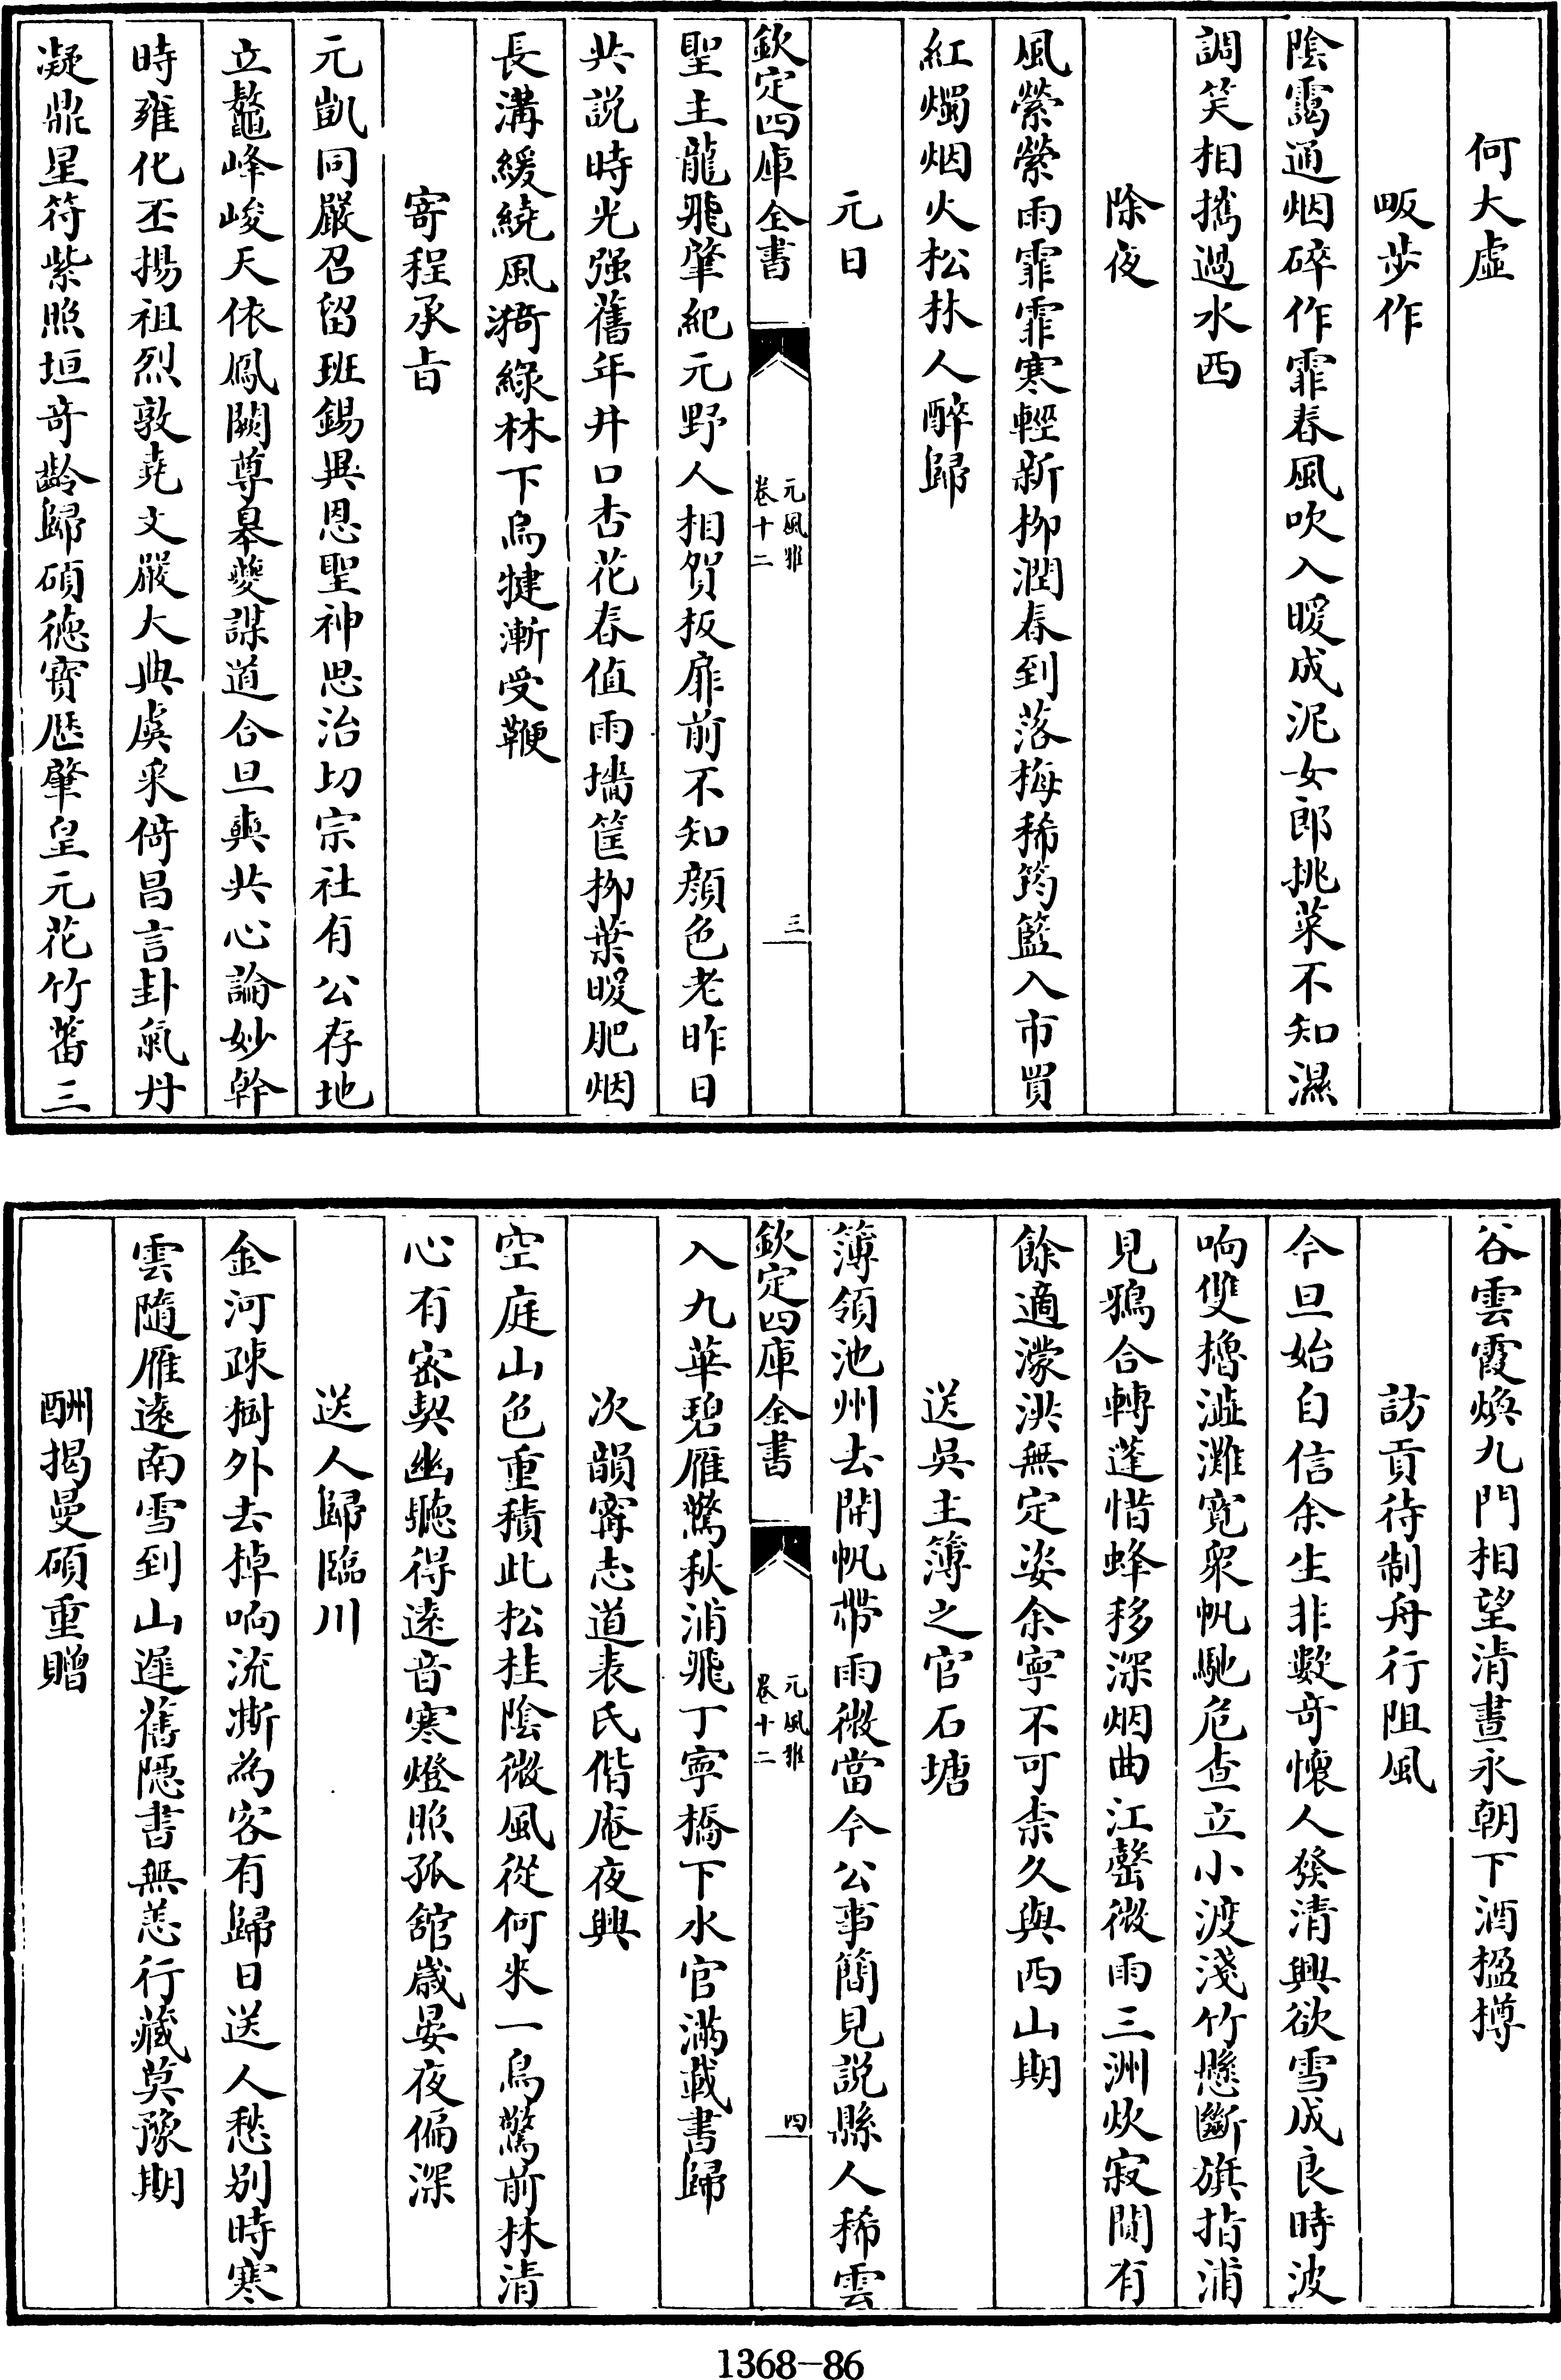 何大虛
畈步作
陰靄通烟碎作霏春風吹入暖成泥女郎挑菜不知濕
調笑相攜過水西
除夜
風縈縈雨霏霏寒輕新柳潤春到落梅稀筠籃入市買
紅燭烟火松林人醉歸
元日
欽定四庫全書
元風雅
卷十二
三
聖主龍飛肇紀元野人相賀扳扉前不知顔色老昨日
共説時光强舊年井口杏花春值雨墻筐柳葉暖肥烟
長溝緩繞風漪綠林下烏犍漸受鞭
寄程承旨
元凱同嚴召留班錫異恩聖神思治切宗社有公存地
立鼇峰峻天依鳳闕尊臯夔謀道合旦奭共心論妙幹
時雍化丕揚祖烈敦堯文嚴大典虞采倚昌言卦氣丹
凝鼎星符紫照垣奇齡歸碩德寳厯肇皇元花竹蕃三
谷雲霞煥九門相望清晝永朝下酒盈樽
訪貢待制舟行阻風
今旦始自信余生非數奇懷人發清興欲雪成良時波
响雙擼澁灘寛衆帆馳危查立小渡淺竹懸斷旗指浦
見鴉合轉蓬惜蜂移深烟曲江罄微雨三洲炊寂閒有
餘適濛洪無定姿余寧不可柰久與西山期
送吳主簿之官石塘
簿領池州去開帆帶雨微當今公事簡見説縣人稀雲
欽定四庫全書
元風雅
卷十二
四
入九華碧雁驚秋浦飛丁寧橋下水官滿載書歸
次韻寗志道表氏偕庵夜興
空庭山色重積此松桂陰微風從何來一鳥驚前林清
心有宻契幽聽得遠音寒燈照孤舘歲晏夜偏深
送人歸臨川
金河疎樹外去棹响流澌為客有歸日送人愁別時寒
雲隨雁遠南雪到山遲舊隱書無恙行藏莫豫期
酬揭曼碩重贈
1368-86